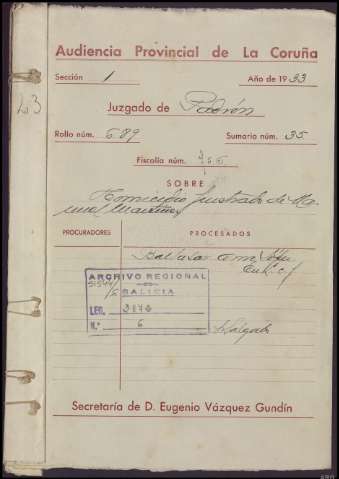 Audiencia Provincial de La Coruña
Sección 1 Año de 1933
23
Juzgado de Padrón
Rollo núm. 689 Sumario núm. 35
Fiscalía núm.
SOBRE
Homicidio frustrado de Ma-
nuel Martínez
PROCURADORES PROCESADOS
Baltasar
ARCHIVO REGIONAL
GALICIA
LEG. 3176
N.º 6
Secretaría de D. Eugenio Vázquez Gundín